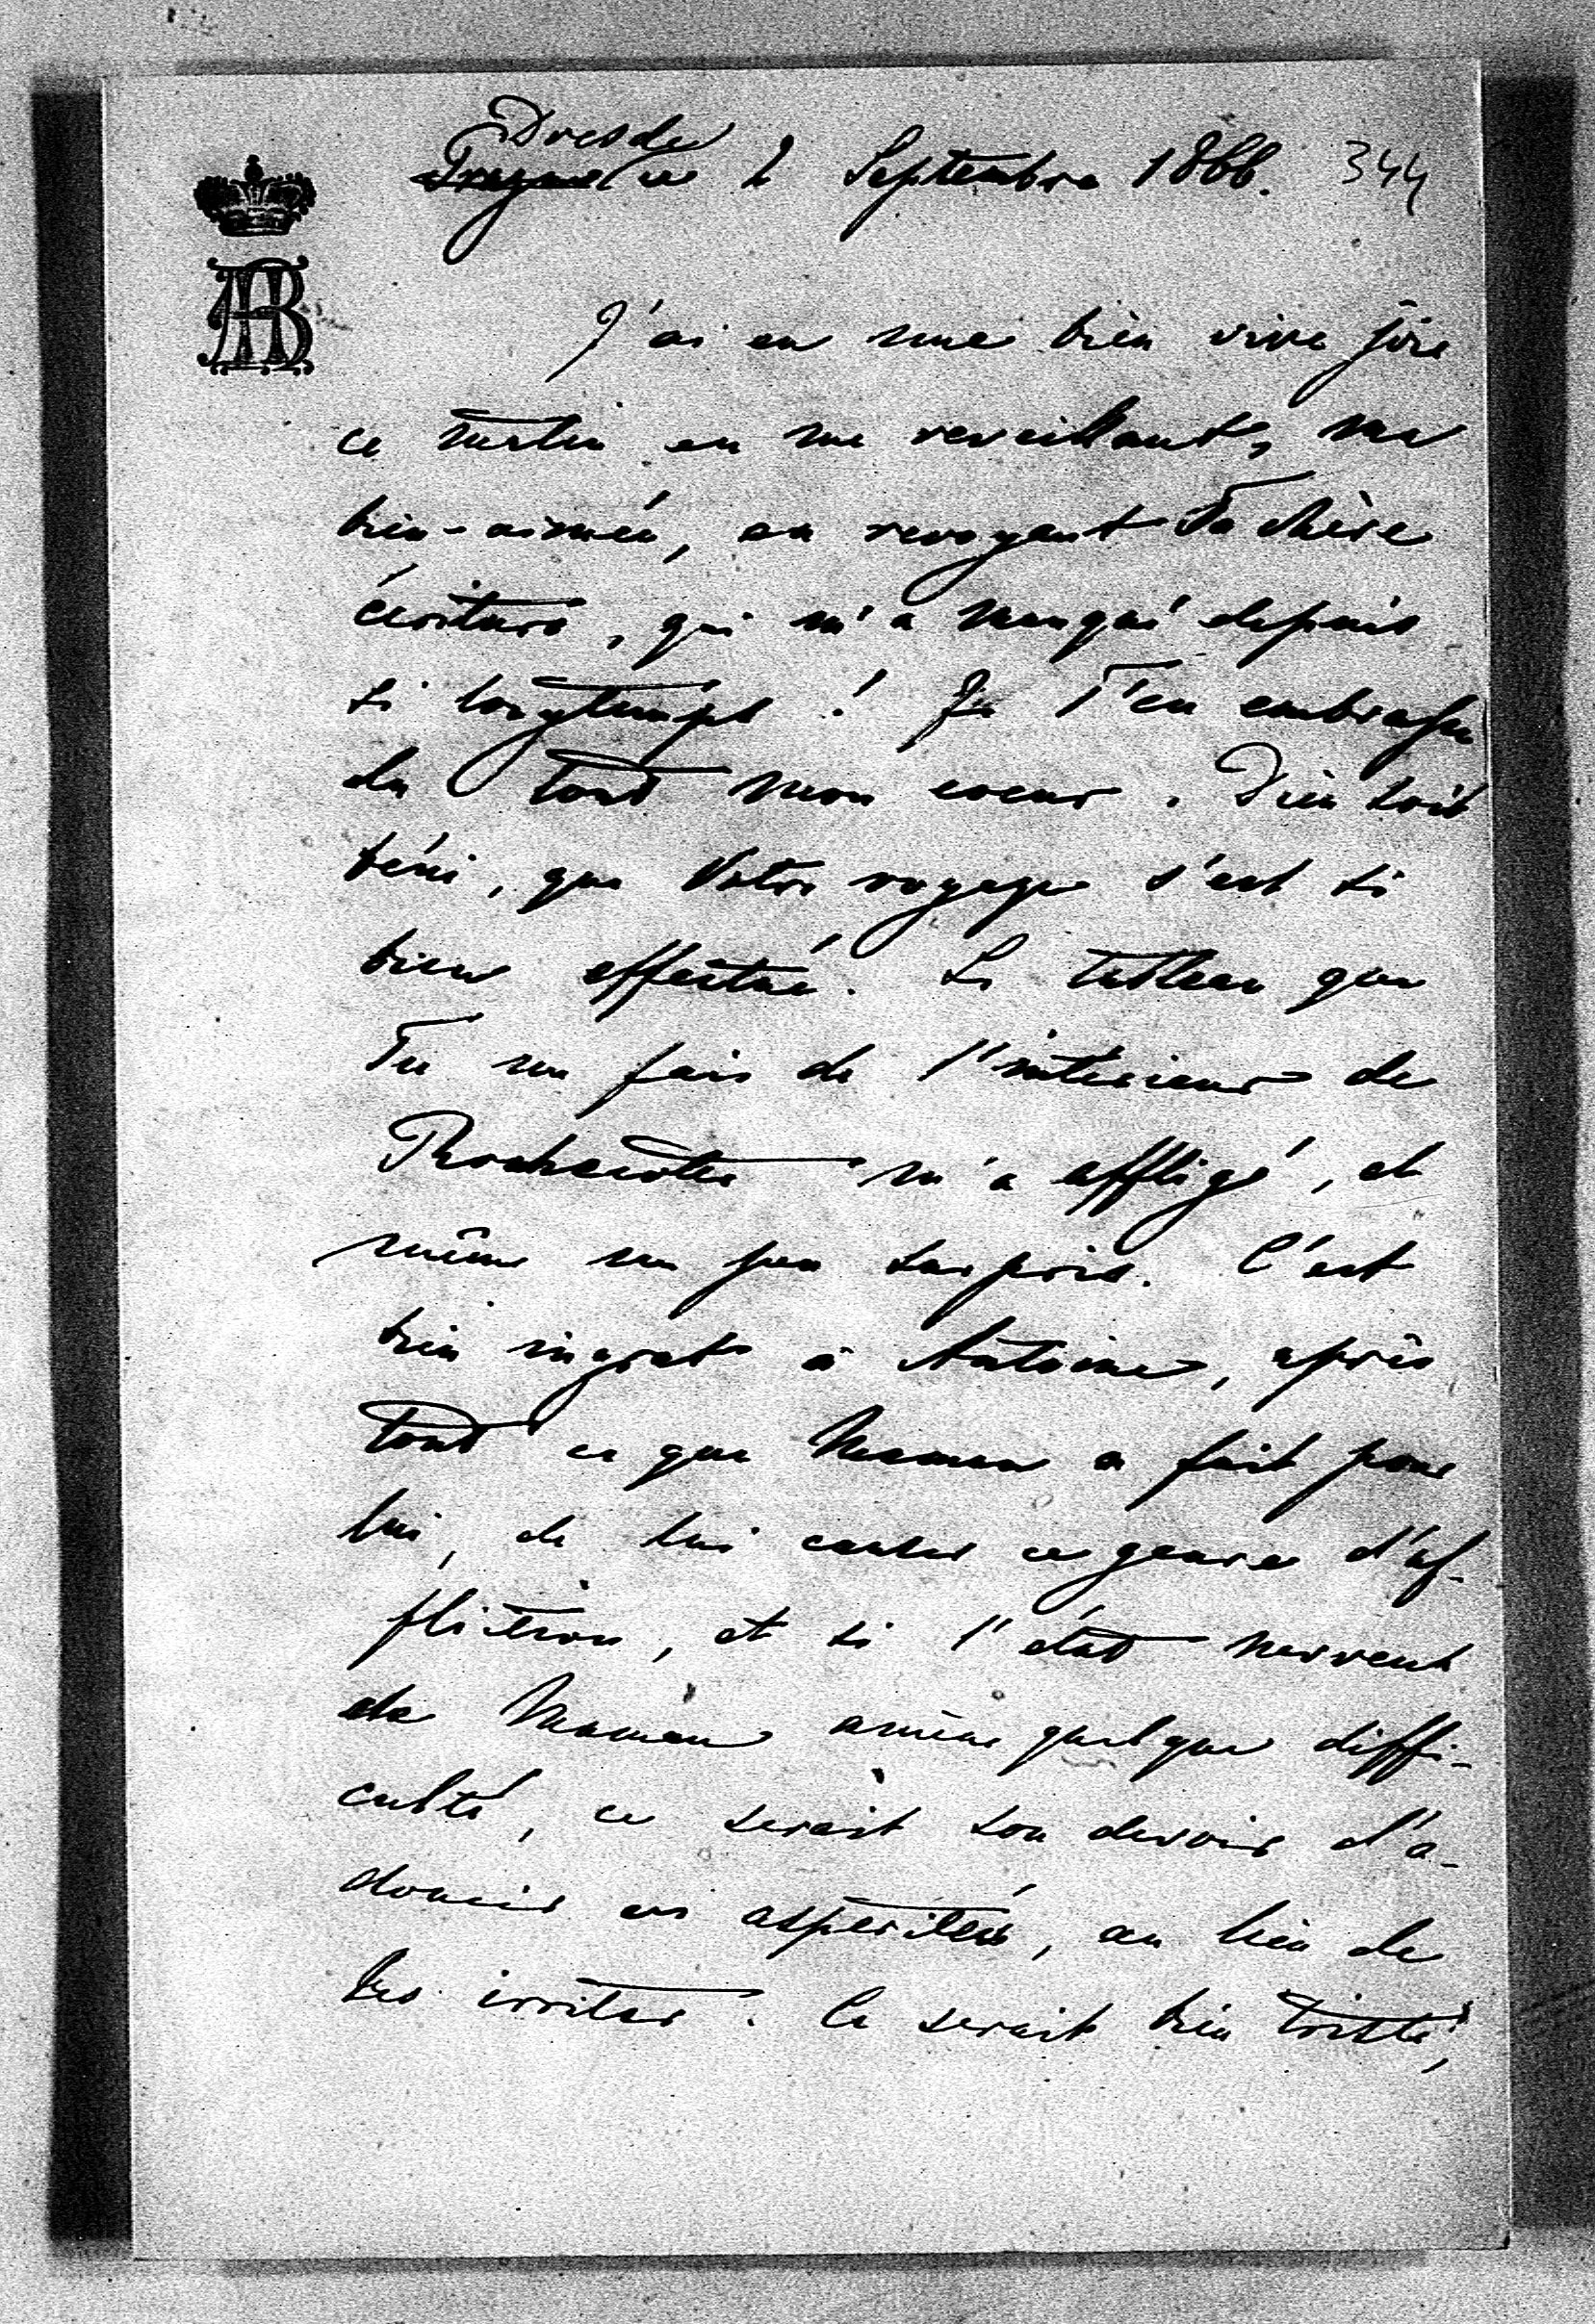 Dresde
Prague ce 2 Septembre 1866. 344
AB
J'ai eu une bien vive joie
ce matin en me reveillant, ma
bien-aimée, en revoyant Ta chère
écriture, qui m'a manqué depuis
si longtemps! Je T'en embrasse
de tout mon coeur. Dieu soit
béni, que Votre voyage s'est si
bien effectué. Le tableau que
Tu me fais de l'intérieur de
Rochecotte m'a affligé, et
même un peu surpris. C'est
bien ingrat à Antoine, après
tout ce que Maman a fait pour
lui, de lui causer ce genre d'af-
fliction, et si l'état nerveux
de Maman amène quelque diffi-
culté, ce serait son devoir d'a-
doucir ces asperités, au lieu de
les irriter. Ce serait bien triste,